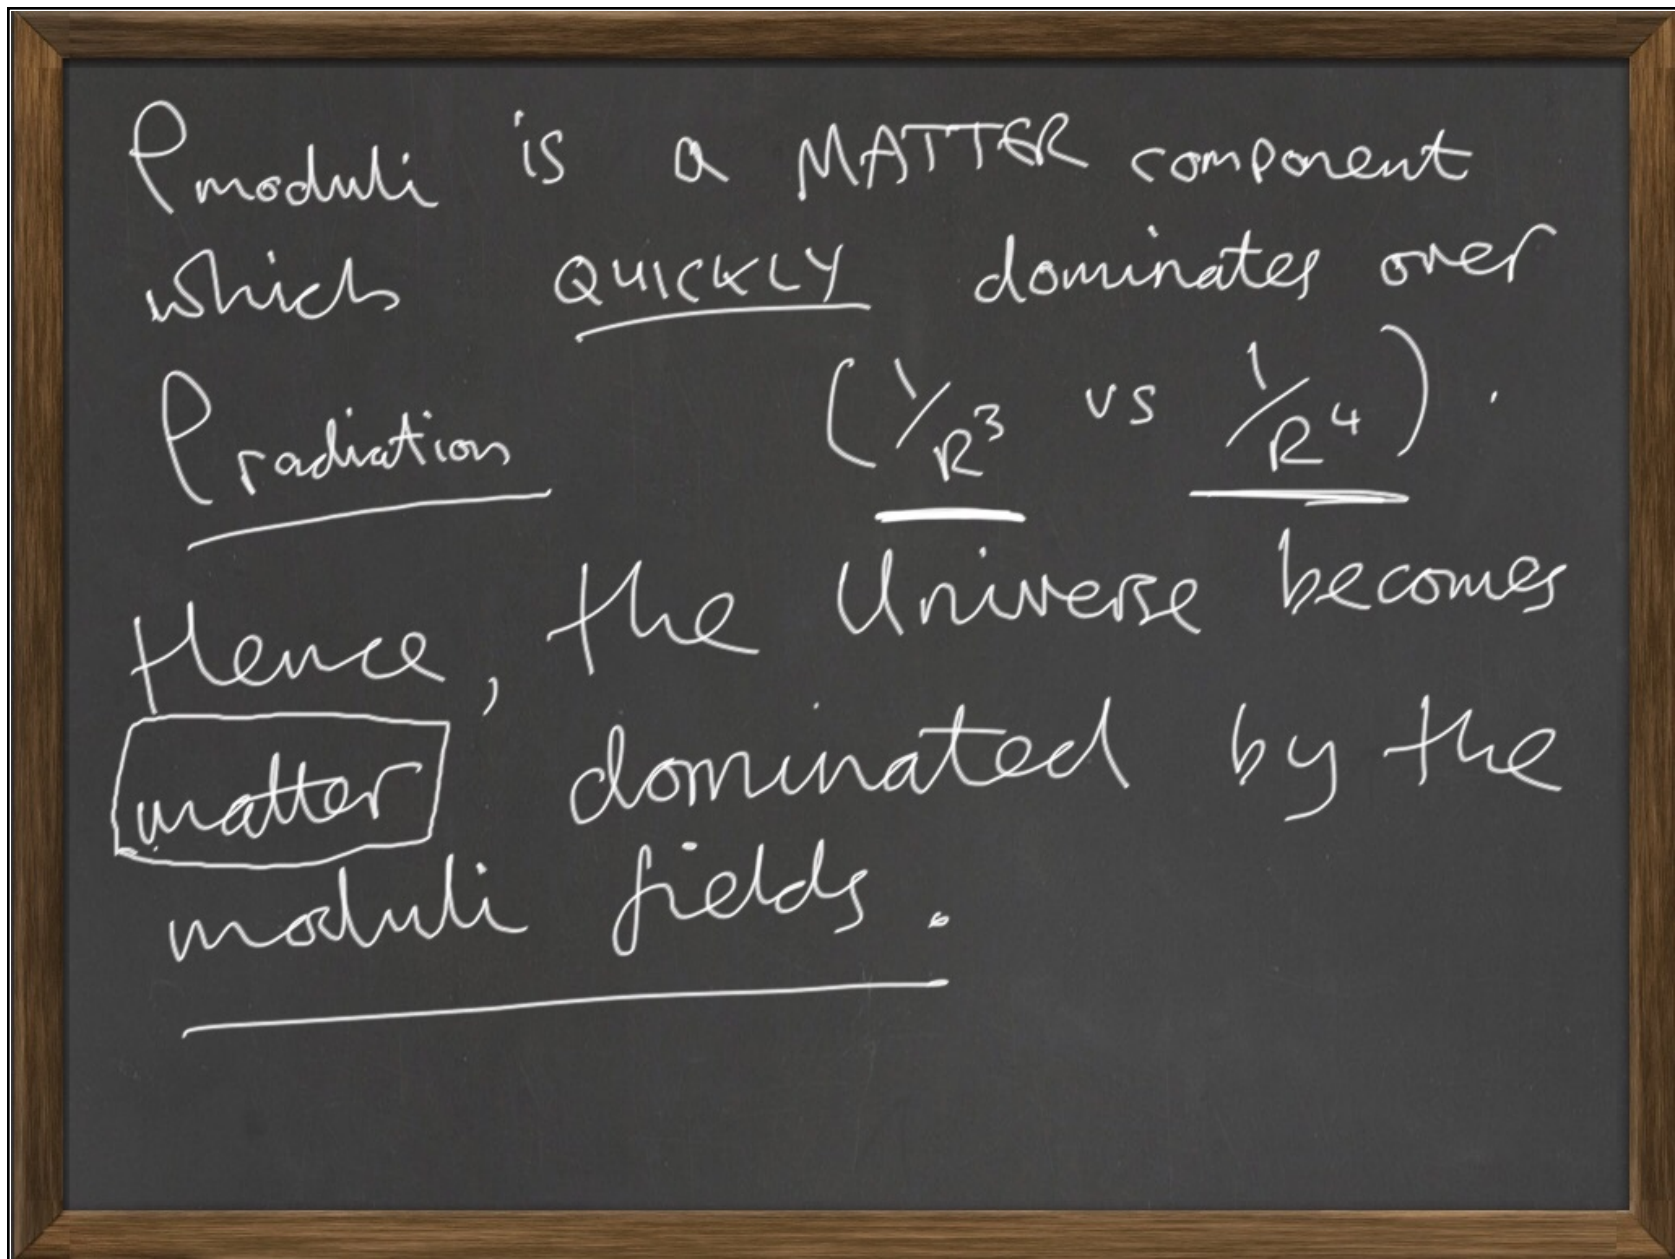 ρmoduli is a MATTER component
which QUICKLY dominates over
ρradiation (1/R³ vs 1/R⁴).
Hence, the Universe becomes
matter dominated by the
moduli fields.